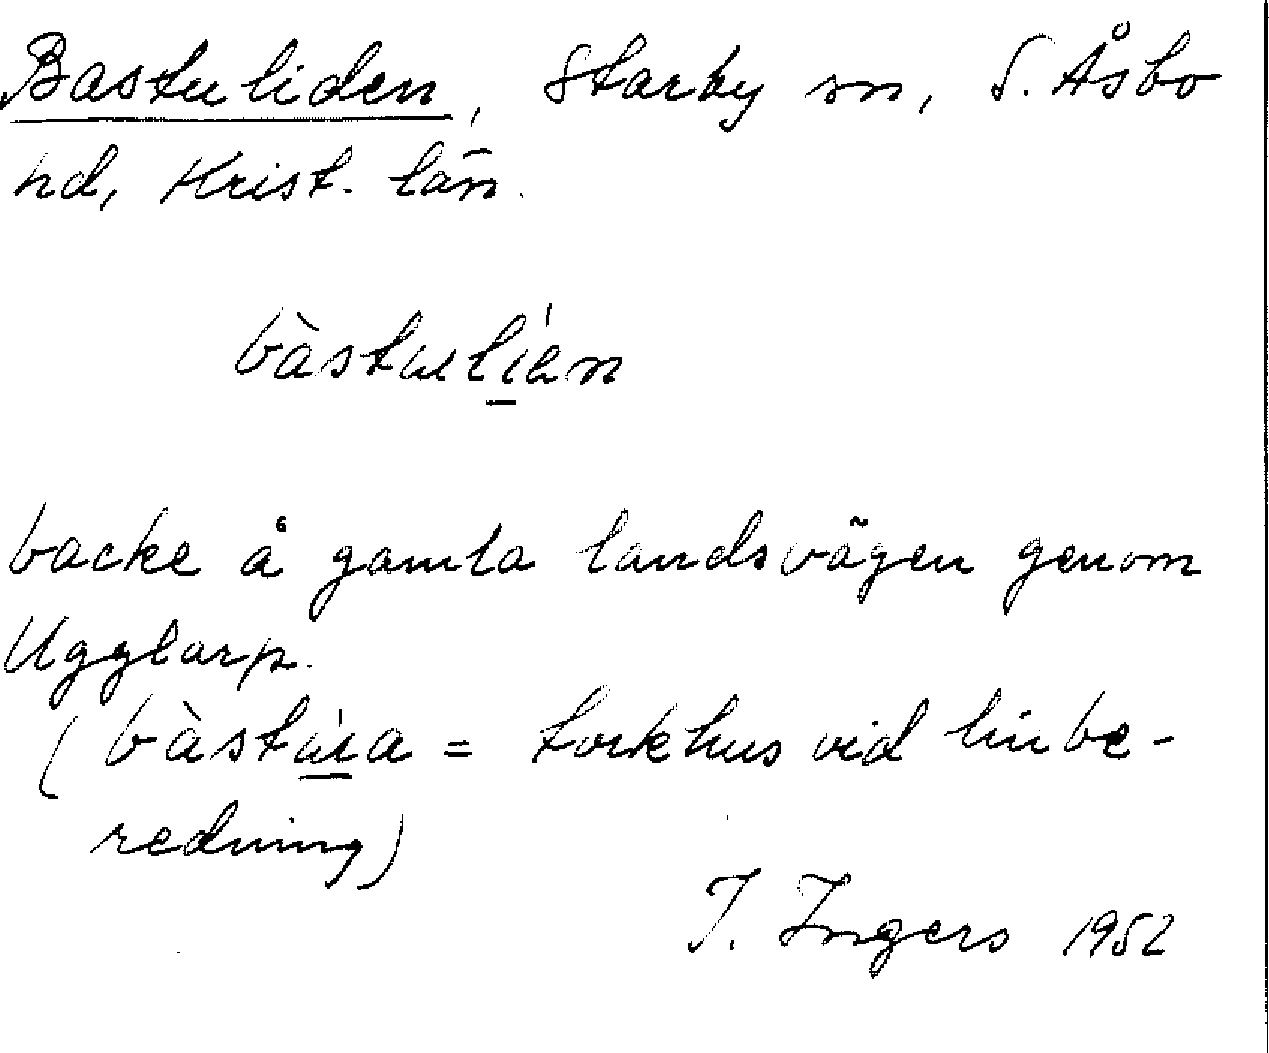 Bastuliden, Starby sn, S. Åsbo
hd, Krist. län.
bàstulíən
backe å gamla landsvägen genom
Ugglarp.
(bàstùa = torkhus vid linbe-
redning)
I. Ingers 1952